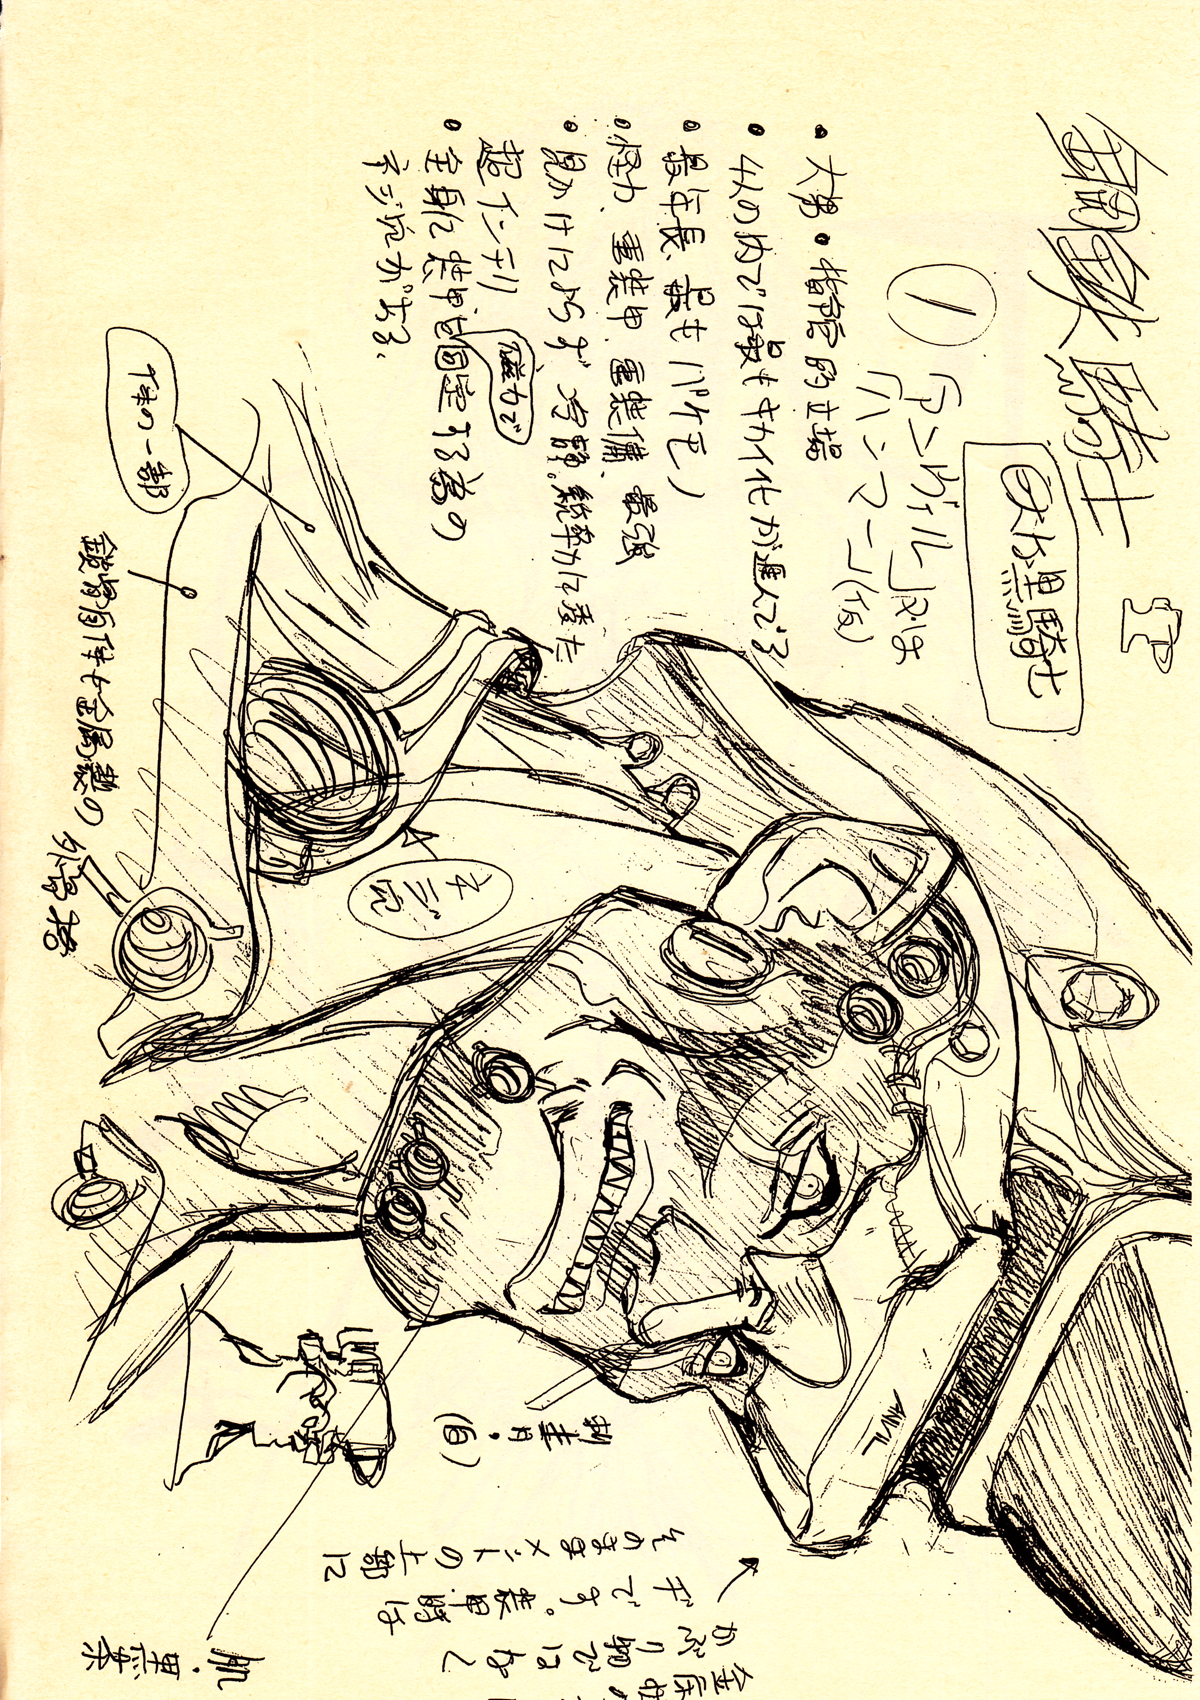 鋼鉄騎士
白大黒騎士
①
「アンヴィル」又は
「ハンマー」(仮)
・大男・指令的立場
・4人の内では最もキカイ化が進んでる
・最年長、最もパイモノ
・怪力、重装甲、重装備、最強
・見かけによらず冷静。統率力に優た
超インテリ
磁力で
・全身に装甲を固定する為の
ネジ穴がある、
下半の一部
鎖骨自体も金属製の
外骨格
ネジ穴
ANVIL
(白)
金属性の
かぶり物ではなく
デです。装甲時は
そのままメットの上部に
肌・黒茶